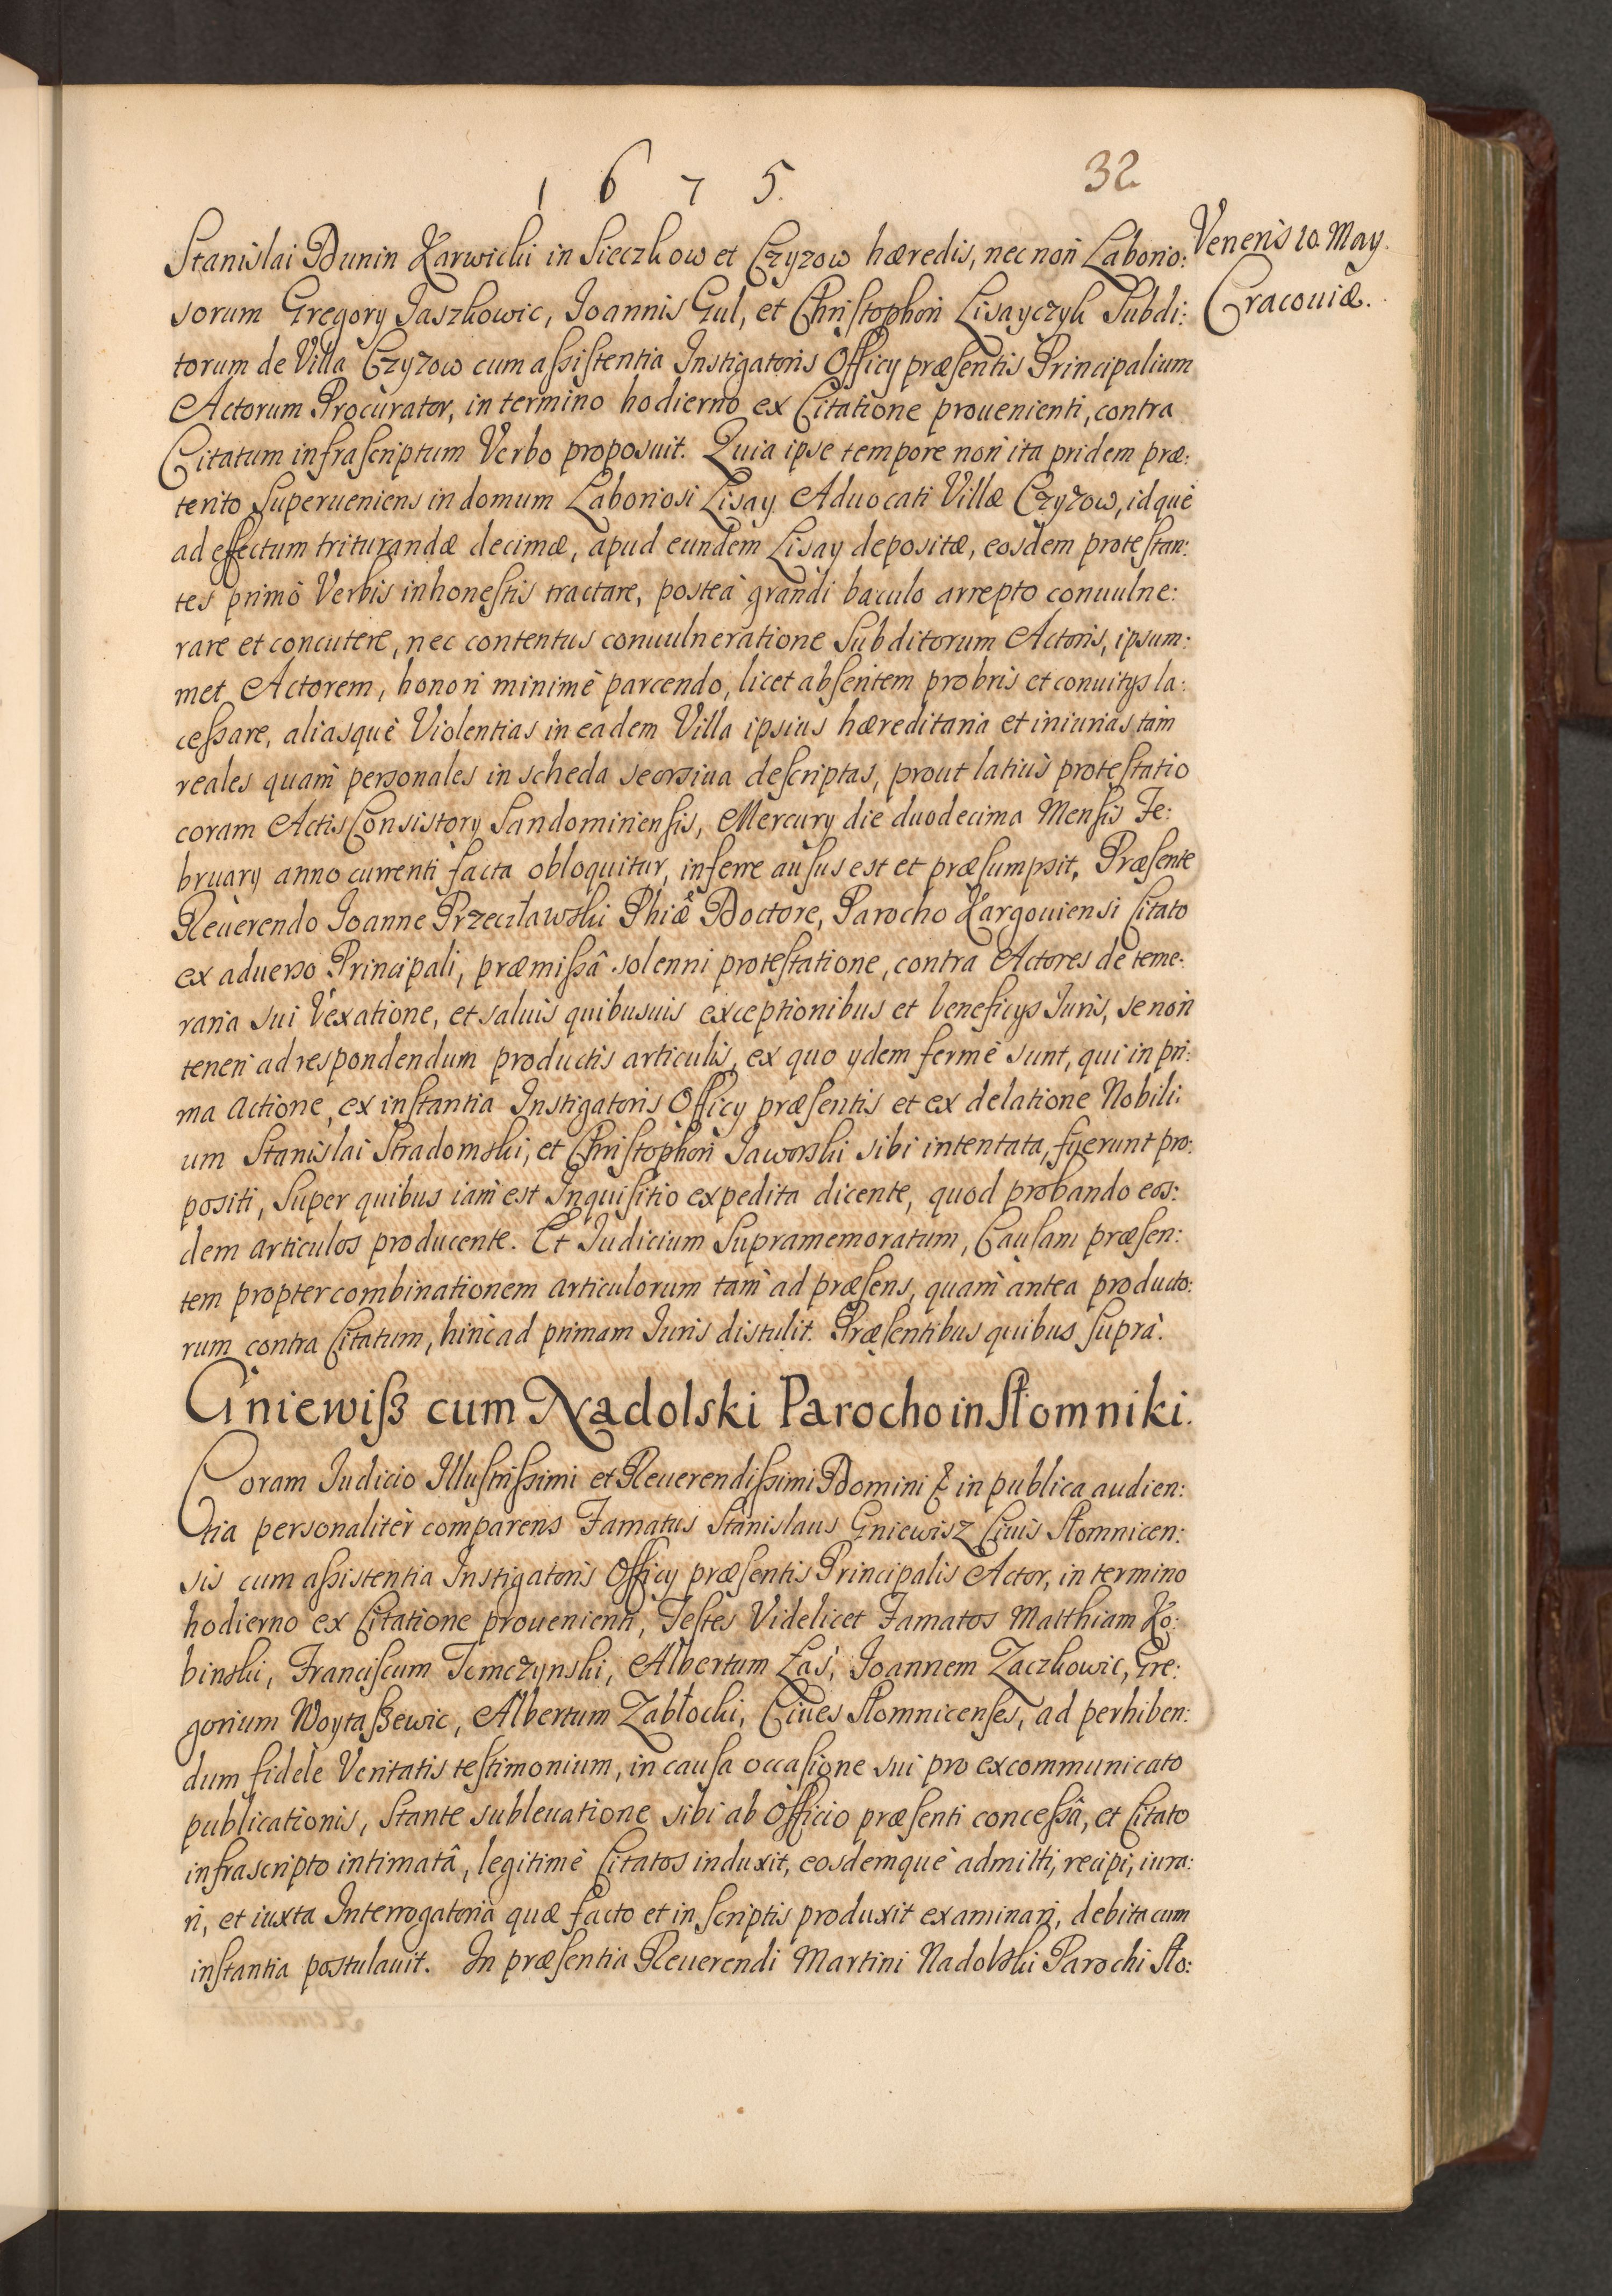 1675.
32
Veneris 10. May.
Cracouiæ.
Stanislai Dunin Karwicki in Sieczkow et Czyzow hæredis, nec non Laborio:
sorum Gregory Jaszkowic, Joannis Gul, et Christophori Lisayczyk Subdi:
torum de Villa Czyzow cum assistentia Instigatoris Officy præsentis Principalium
Actorum Procurator, in termino hodierno ex Citatione prouenienti, contra
Citatum infrascriptum Verbo proposuit. Quia ipse tempore non ita pridem præ:
terito Superueniens in domum Laboriosi Lisay Aduocati Villæ Czyzow, idquè
ad effectum triturandæ decimæ, apud eundem Lisay depositæ, eosdem protestan:
tes primò Verbis inhonestis tractare, posteà grandi baculo arrepto conuulne:
rare et concutere, nec contentus conuulneratione Subditorum Actoris, ipsum:
met Actorem, honori minimè parcendo, licet absentem probris et conuitys la:
cessare, aliasquè Violentias in eadem Villa ipsius hæreditaria et iniurias tàm
reales quàm personales in scheda seorsiua descriptas, prout latiùs protestatio
coram Actis Consistory Sandomiriensis, Mercury die duodecima Mensis Fe:
bruary anno currenti facta obloquitur, inferre ausus est et præsumpsit, Præsente
Reuerendo Joanne Przeczławski Phiæ Doctore, Parocho Kargouiensi Citato
ex aduerso Principali, præmissâ solenni protestatione, contra Actores de teme:
raria sui Vexatione, et saluis quibusuis exceptionibus et beneficys Juris, se non
teneri ad respondendum productis articulis, ex quo ydem fermè sunt, qui in pri:
ma Actione, ex instantia Instigatoris Officy præsentis et ex delatione Nobili:
um Stanislai Stradomski, et Christophori Jaworski sibi intentata, fuerunt pro:
positi, Super quibus iàm est Inquisitio expedita dicente, quod probando eos:
dem articulos producente. Et Judicium Supramemoratum, Causam præsen:
tem propter combinationem articulorum tàm ad præsens, quàm antea producto:
rum contra Citatum, hinc ad primam Juris distulit. Præsentibus quibus suprà.
Gniewisz cum Nadolski Parocho in Słomniki.
Coram Judicio Illustrissimi et Reuerendissimi Domini & in publica audien:
tia personalitèr comparens Famatus Stanislaus Gniewisz Ciuis Słomnicen:
sis cum assistentia Instigatoris Officy præsentis Principalis Actor, in termino
hodierno ex Citatione prouenienti, Testes Videlicet Famatos Matthiam Ko:
binski, Franciscum Tomczynski, Albertum Łaś, Joannem Zaczkowic, Gre:
gorium Woytaszewic, Albertum Zabłocki, Ciues Słomnicenses, ad perhiben:
dum fidele Veritatis testimonium, in causa occasione sui pro excommunicato
publicationis, Stante subleuatione sibi ab Officio præsenti concessâ, et Citato
infrascripto intimatâ, legitimè Citatos induxit, eosdemquè admitti, recipi, iura:
ri, et iuxta Interrogatoria quæ facto et in scriptis produxit examinari, debita cum
instantia postulauit. In præsentia Reuerendi Martini Nadolski Parochi Sło: